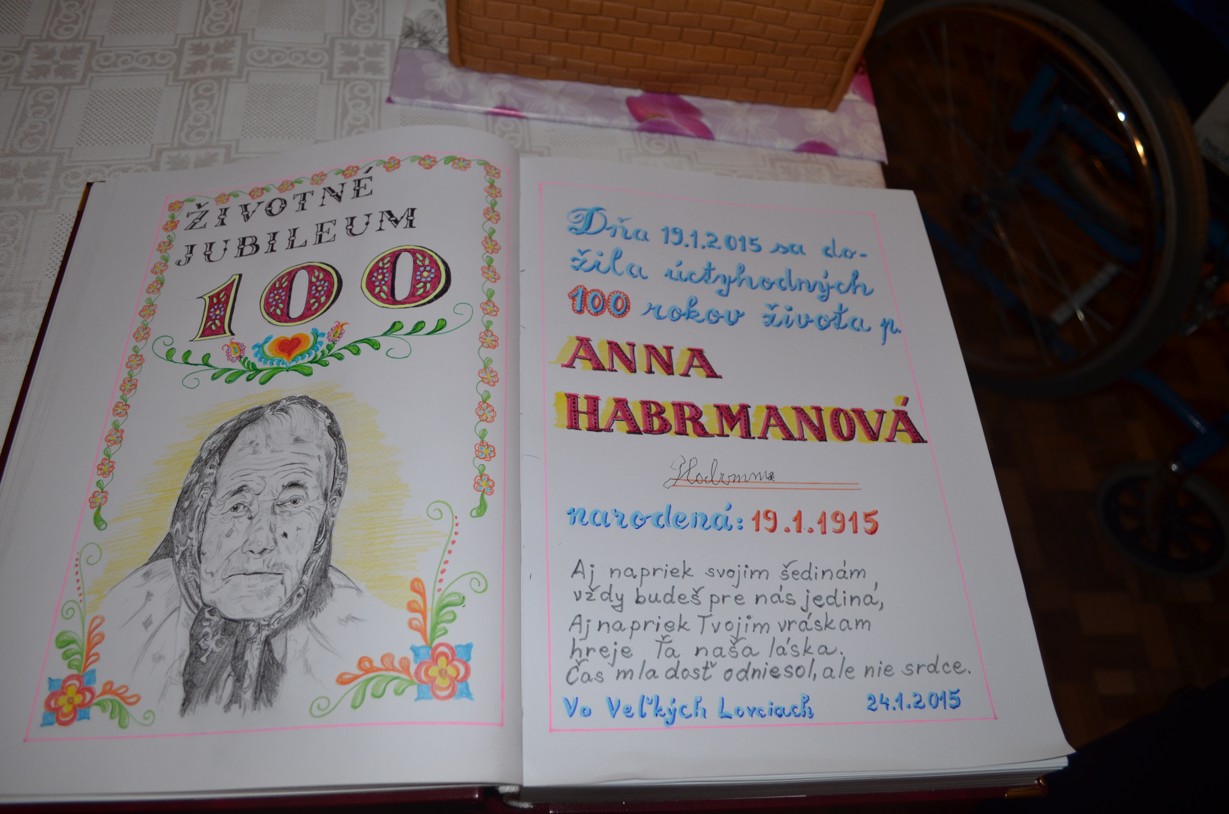 ŽIVOTNÉ
JUBILEUM
100
Dňa 19.1.2015 sa do-
žila úctyhodných
100 rokov života p.
ANNA
HABRMANOVÁ
narodená: 19.1.1915
Aj napriek svojim šedinám
vždy budeš pre nás jediná,
Aj napriek Tvojim vráskam
hreje Ťa naša láska.
Čas mladosť odniesol, ale nie srdce.
Vo Veľkých Levciach 24.1.2015